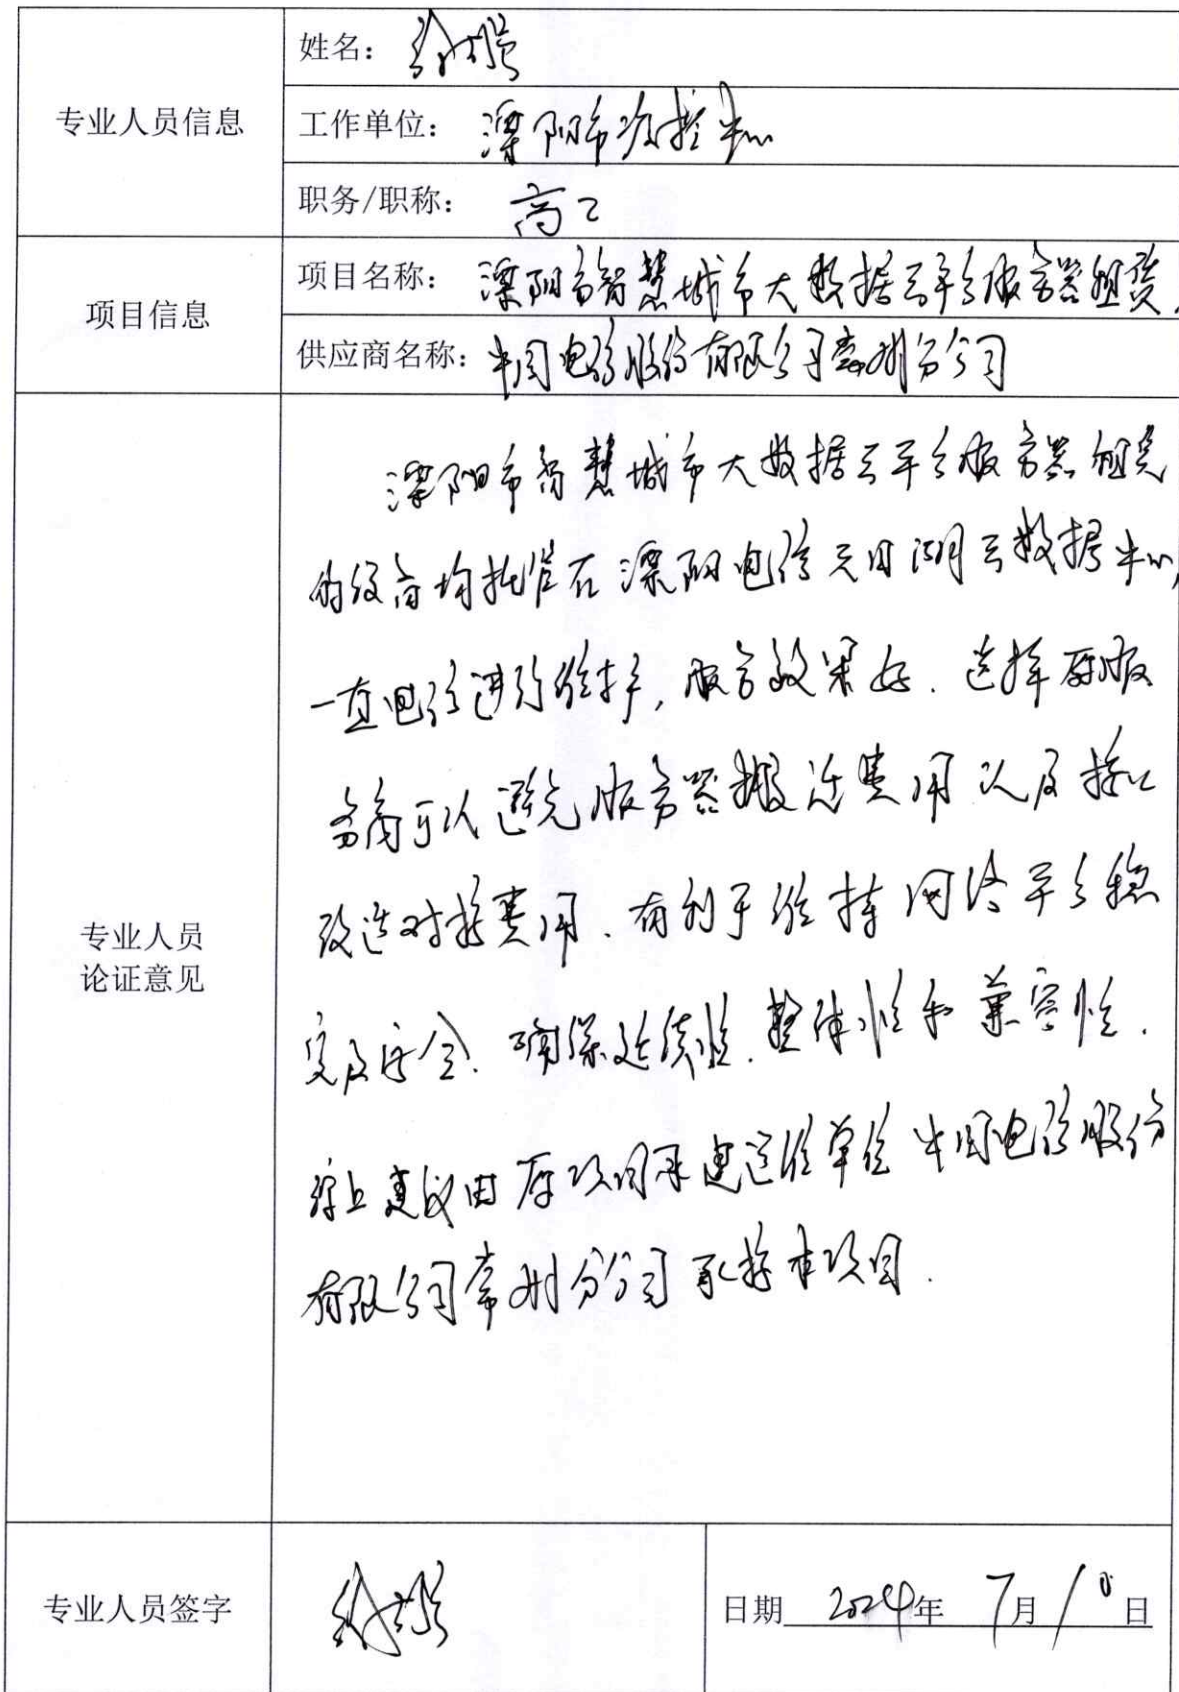 专业人员信息
姓名：徐
工作单位：溧阳市疾控中心
职务/职称：高工
项目信息
项目名称：溧阳市智慧城市大数据云平台服务器租赁
供应商名称：中国电信股份有限公司常州分公司
专业人员
论证意见
溧阳市智慧城市大数据云平台服务器租赁
的设备均托管在溧阳电信天目湖云数据中心，
一直电信进行维护，服务效果好．选择原服
务商可以避免服务器搬迁费用以及接口
改造对接费用．有利于维持网络平台稳
定及安全．确保延续性．整体性和兼容性．
综上建议由原项目承建运维单位中国电信股份
有限公司常州分公司承接本项目．
专业人员签字
徐
日期 2024年 7月 10日